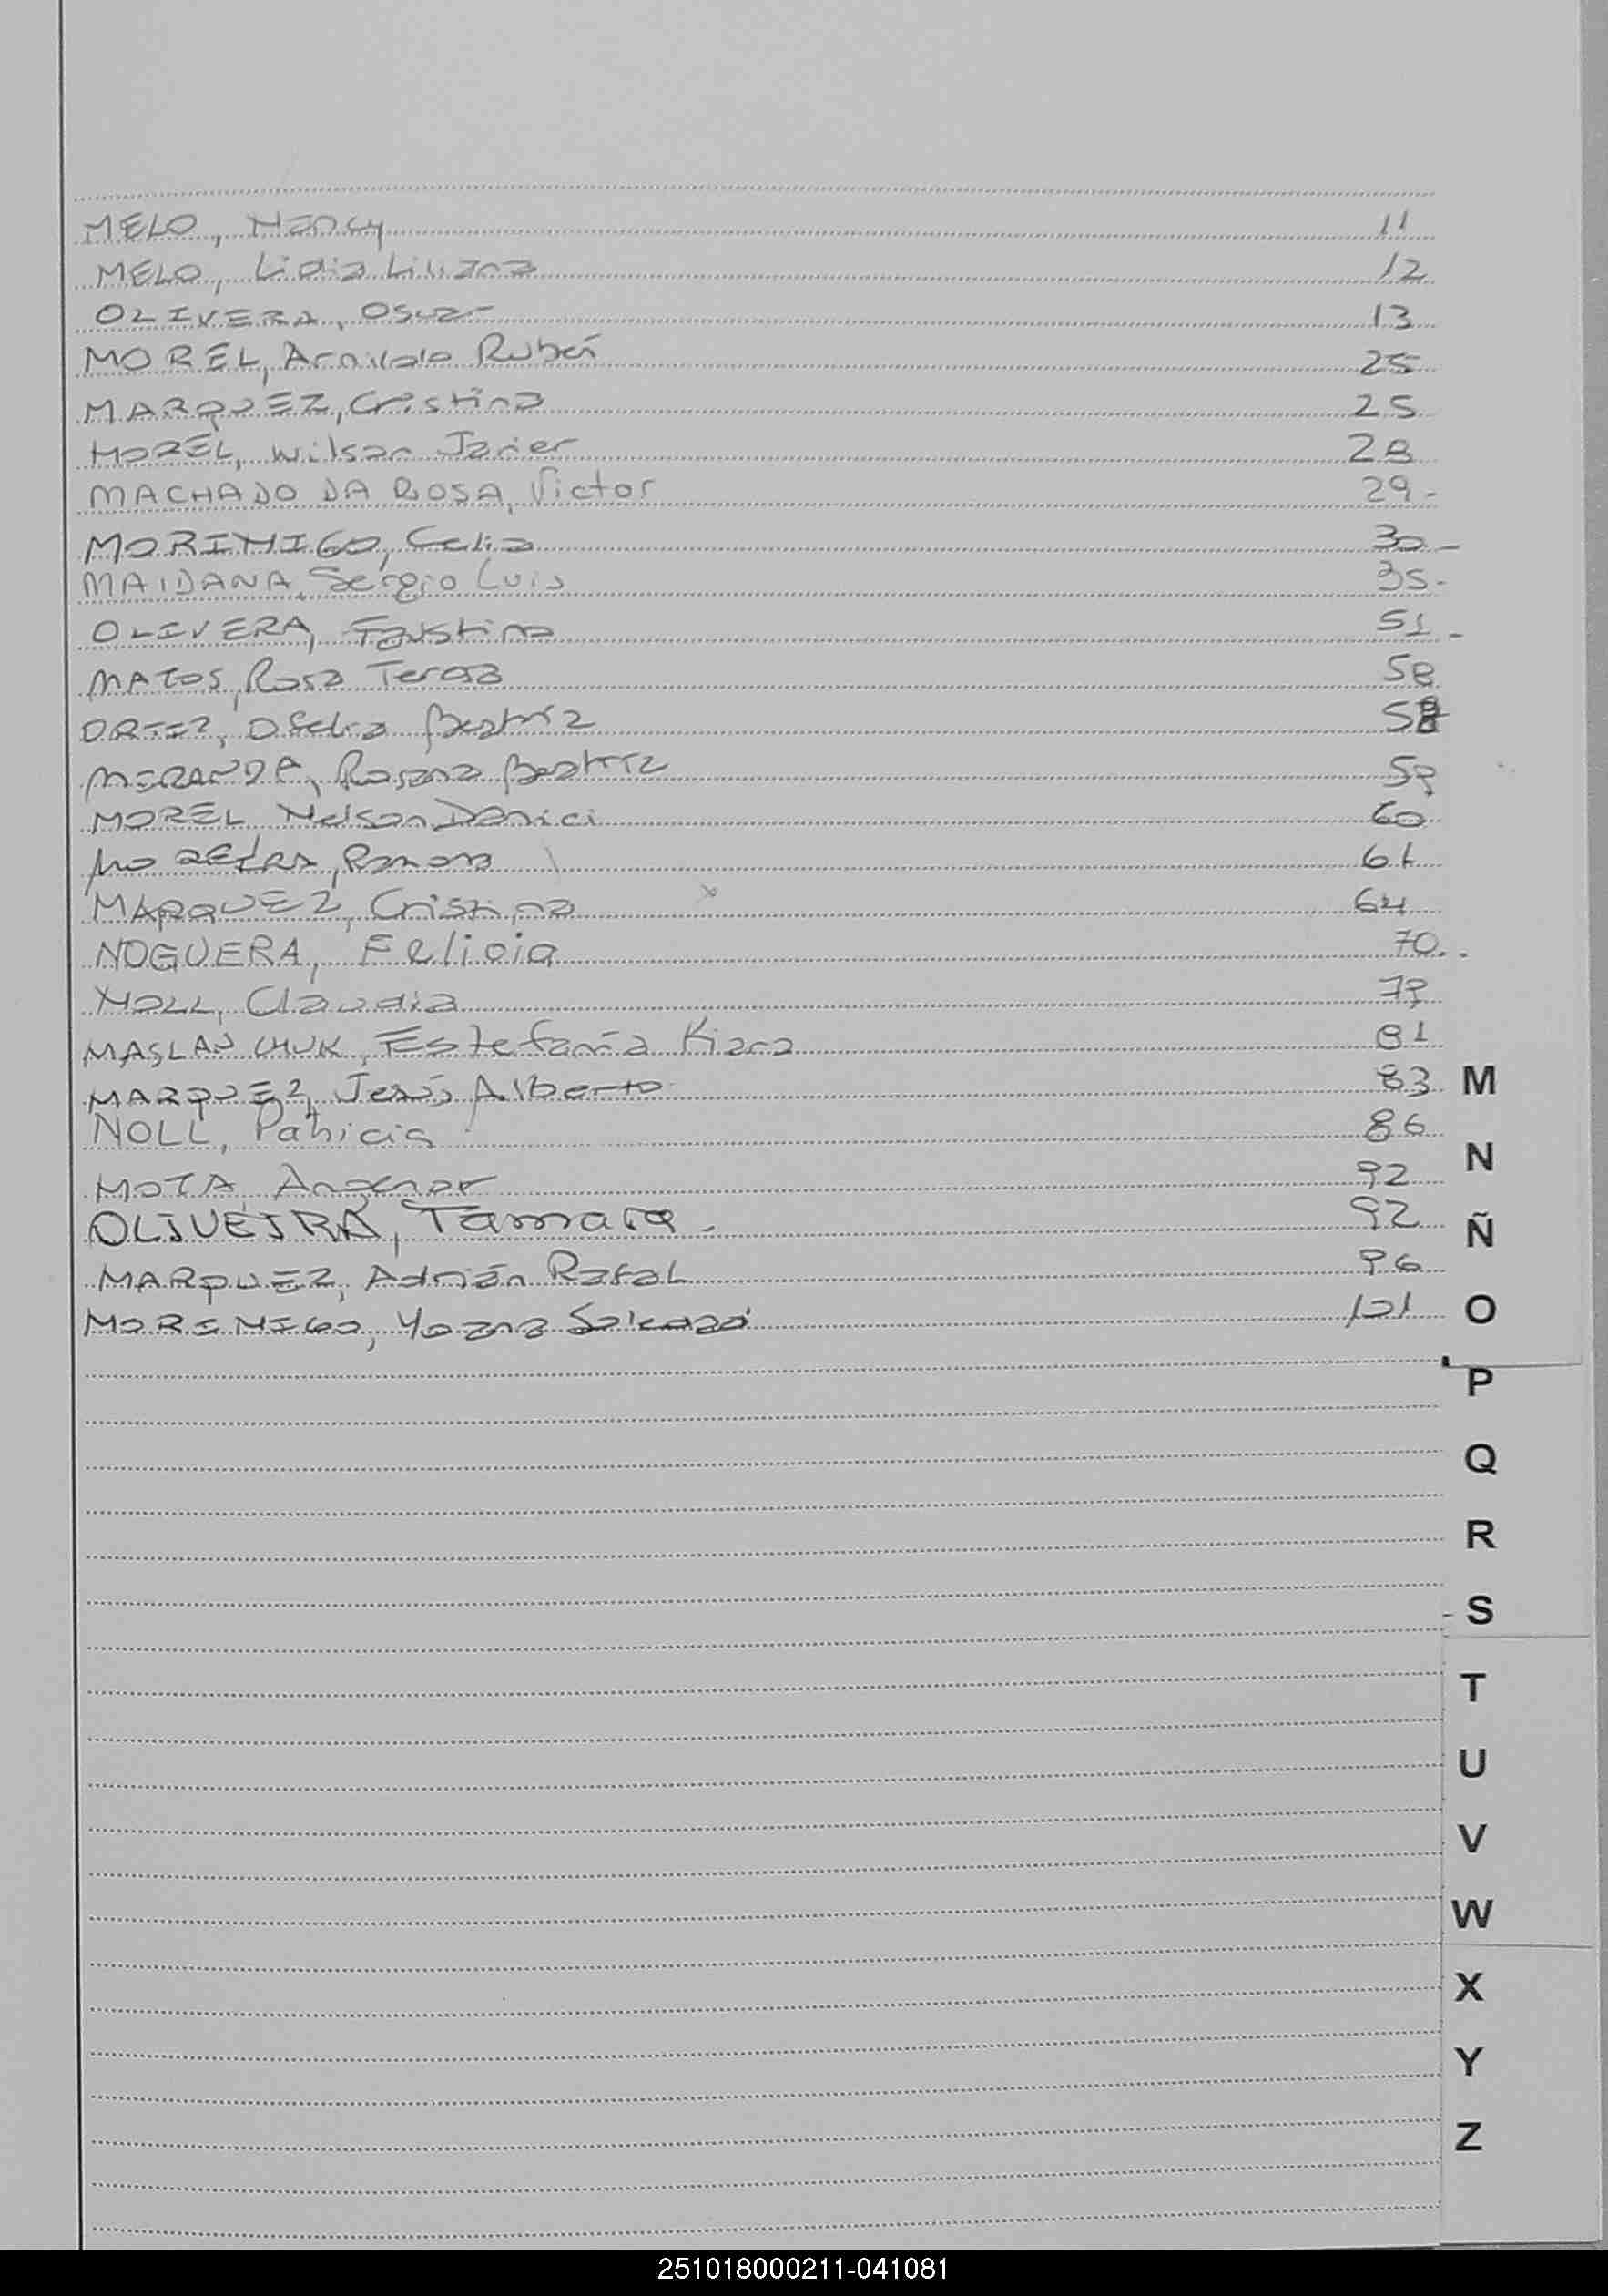 MELO, Nancy 11
MELO, Lidia Liliana 12
OLIVERA, Oscar 13
MOREL, Arnildo Rubén 25
MARQUEZ, Cristina 25
MOREL, Wilson Javier 28
MACHADO DA ROSA, Victor 29-
MORINIGO, Celia 30-
MAIDANA, Sergio Luis 35-
OLIVERA, Faustino 51-
MATOS, Rosa Teresa 58
ORTIZ, Ofelia Beatriz 58
MIRANDA, Rosana Beatriz 59
MOREL Nelson Daniel 60
MOREIRA, Ramona 61
MARQUEZ, Cristina 64
NOGUERA, Felicia 70..
NOLL, Claudia 79
MASLANCHUK, Estefanía Kiara 81
MARQUEZ, Jesús Alberto 83
NOLL, Patricia 86
MOTA 92
OLIVEIRA, Tamara- 92
MARQUEZ, Adrián Rafal 96
MORINIGO, Yoana 101
M
N
Ñ
O
P
Q
R
S
T
U
V
W
X
Y
Z
251018000211-041081